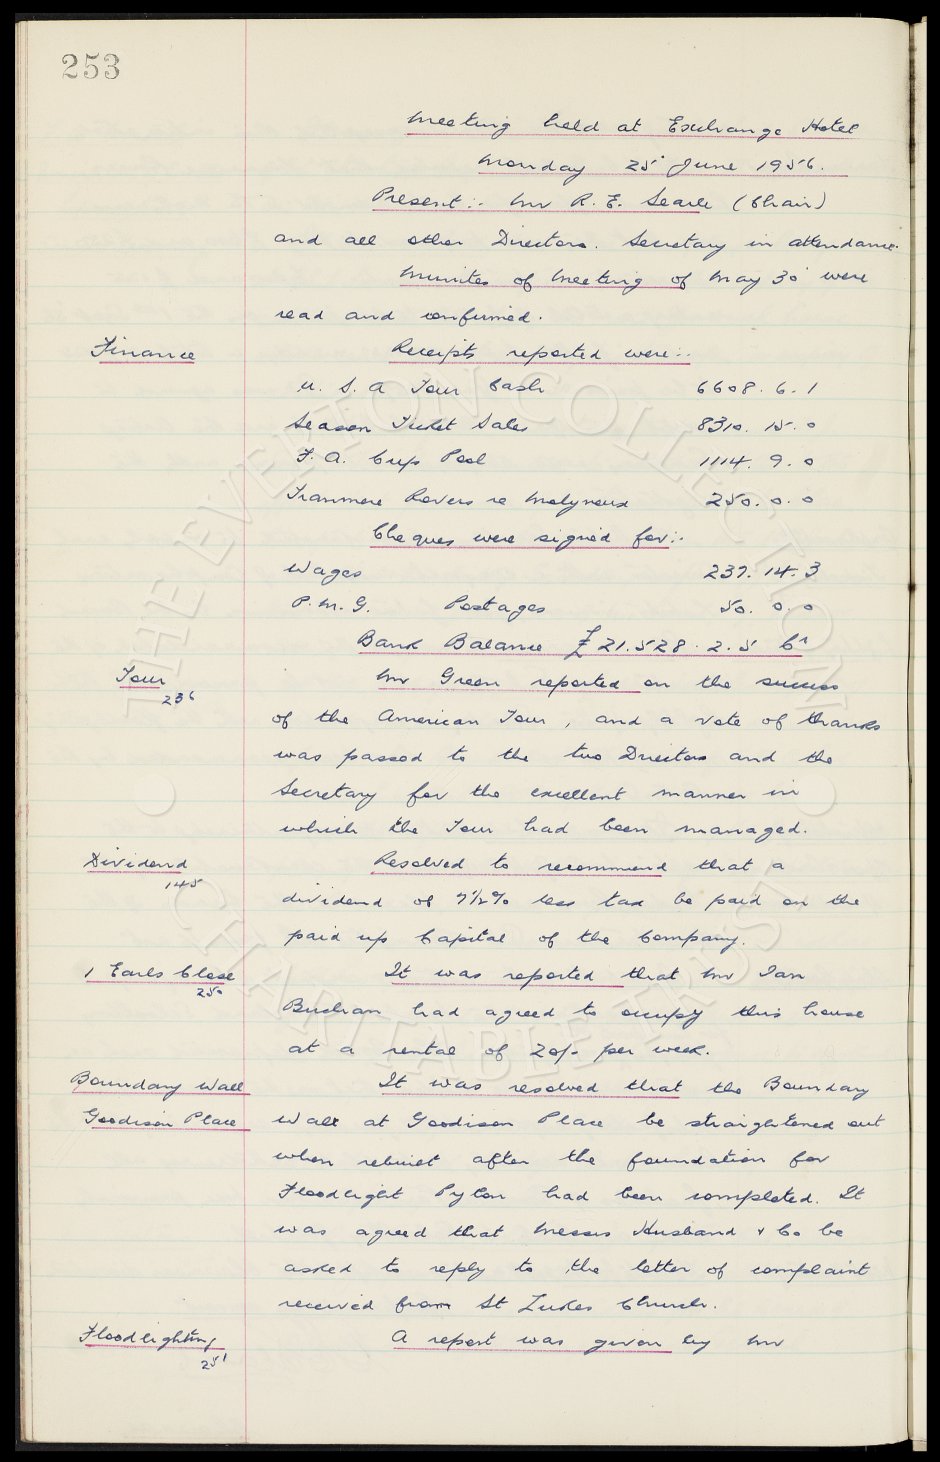 253
Meeting held at Exchange Hotel
Monday 25' June 1956.
Present:- Mr R. E. Searle (Chair)
and all other Directors. Secretary in attendance.
Minutes of Meeting of May 30' were
read and confirmed.
Finance
Receipts reported were:-
U. S. A Tour Cash 6608. 6. 1
Season Ticket Sales 8310. 15. 0
F. A. Cup Pool 1114. 9. 0
Tranmere Rovers re Molyneux 250. 0. 0
Cheques were signed for:-
Wages 237. 14. 3
P. M. G. Postages 50. 0. 0
Bank Balance £21.528. 2. 5 Cr
Tour
236
Mr Green reported on the success
of the American Tour, and a vote of thanks
was passed to the two Directors and the
Secretary for the excellent manner in
which the Tour had been managed.
Dividend
145
Resolved to recommend that a
dividend of 7½% less tax be paid on the
paid up Capital of the Company.
1 Earls Close
250
It was reported that Mr Ian
Buchan had agreed to occupy this house
at a rental of 20/- per week.
Boundary Wall
Goodison Place
It was resolved that the Boundary
Wall at Goodison Place be straightened out
when rebuilt after the foundation for
Floodlight Pylon had been completed. It
was agreed that Messrs Husband & Co be
asked to reply to the letter of complaint
received from St Lukes Church.
Floodlighting
251
A report was given by Mr
THE EVERTON COLLECTION
CHARITABLE TRUST